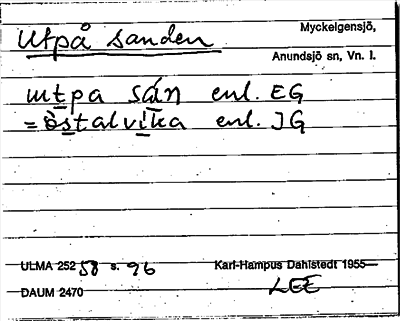 Utpå sanden
Myckelgensjö,
Anundsjö sn, Vn. l.
utpa sán enl. EG
= òstalvika enl. JG
ULMA 252 58 s. 96
Karl-Hampus Dahlstedt 1955—
DAUM 2470
LEE